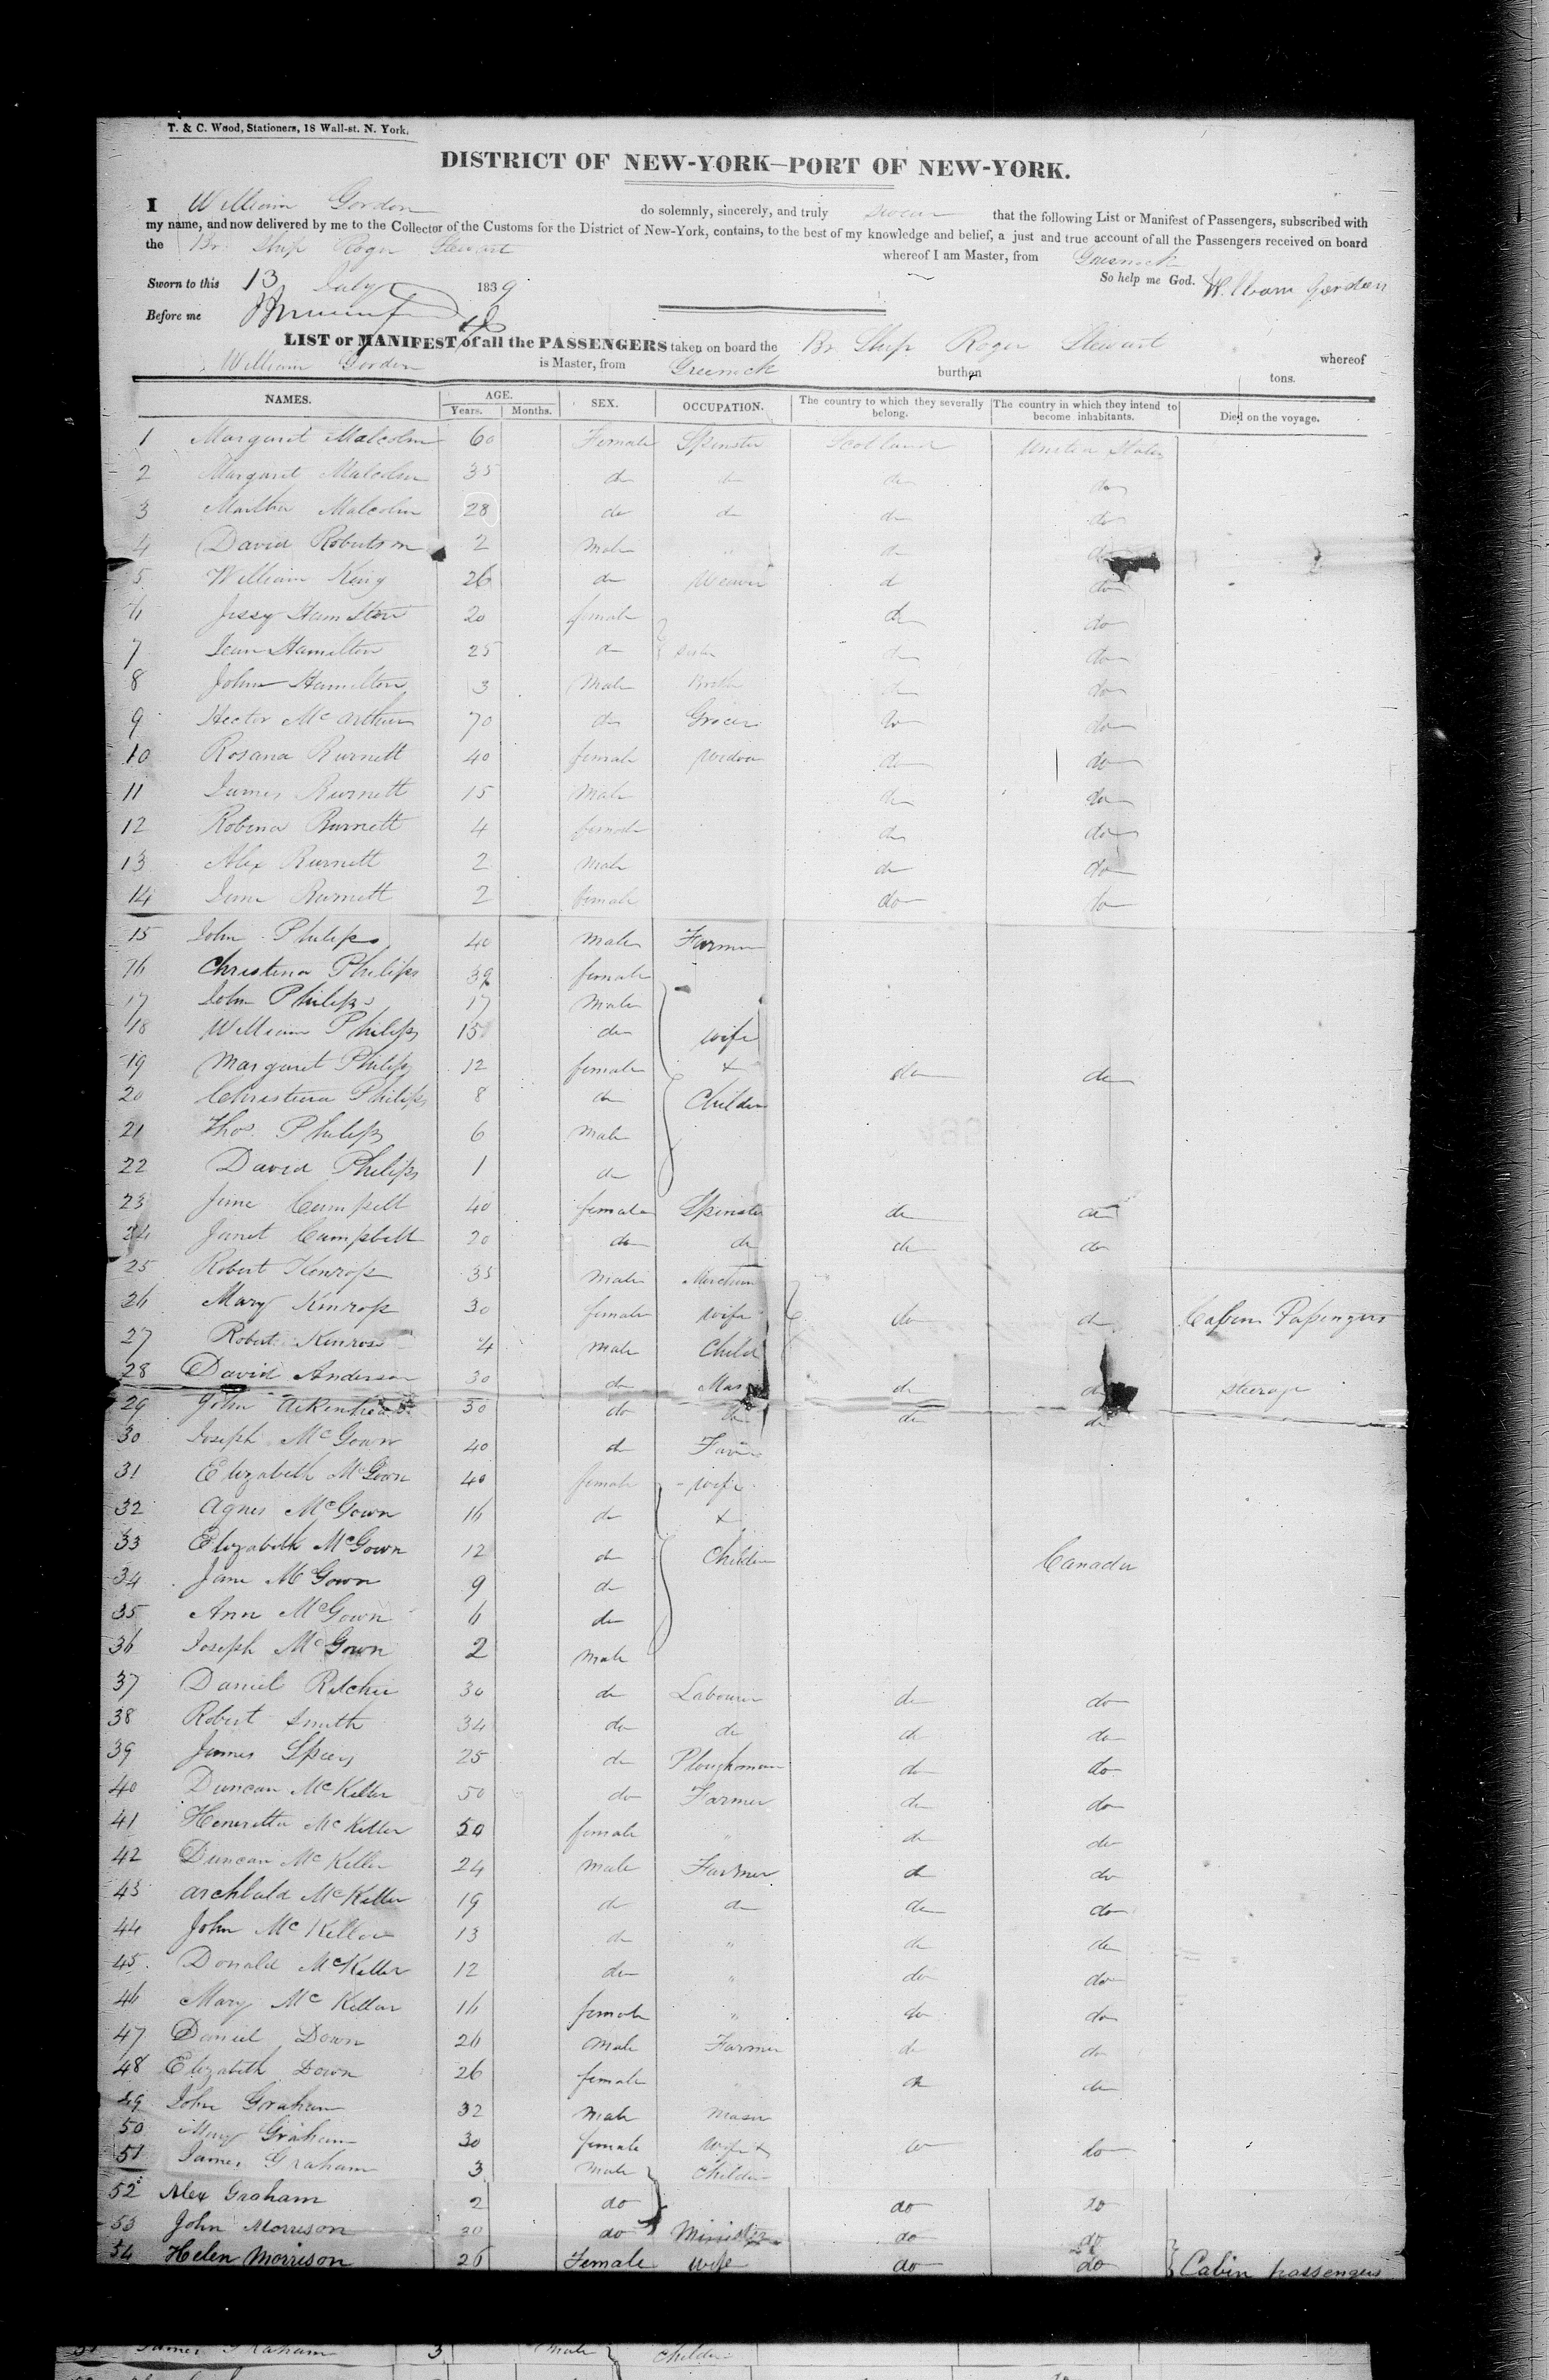 T. & C. Wood, Stationers, 18 Wall-st. N. York.
DISTRICT OF NEW-YORK—PORT OF NEW-YORK.
I William Gordon do solemnly, sincerely, and truly swear that the following List or Manifest of Passengers, subscribed with
my name, and now delivered by me to the Collector of the Customs for the District of New-York, contains, to the best of my knowledge and belief, a just and true account of all the Passengers received on board
the Br. Ship Roger Stewart whereof I am Master, from Greenock
Sworn to this 13 July 1839 So help me God. William Gordon
Before me
LIST or MANIFEST of all the PASSENGERS taken on board the Br. Ship Roger Stewart whereof
William Gordon is Master, from Greenock burthen tons.
NAMES. AGE. SEX. OCCUPATION. The country to which they severally belong. The country in which they intend to become inhabitants. Died on the voyage.
Years. Months.
1 Margaret Malcolm 60 Female Spinster Scotland United States
2 Margaret Malcolm 35 do do do do
3 Martha Malcolm 28 do do do do
4 David Robertson 2 Male " do do
5 William King 26 do Weaver do do
6 Jessy Hamilton 20 female do do
7 Jean Hamilton 25 do Sister do do
8 John Hamilton 3 Male Broth do do
9 Hector McArthur 70 do Grocer do do
10 Rosana Burnett 40 female Widow do do
11 James Burnett 15 Male do do
12 Robina Burnett 4 female do do
13 Alex Burnett 2 Male do do
14 Jane Burnett 2 female do do
15 John Philips 40 Male Farmer
16 Christina Philips 39 female
17 John Philips 17 Male
18 William Philips 15 do wife
19 Margaret Philips 12 female + do do
20 Christina Philips 8 do Children
21 Thos. Philips 6 Male
22 David Philips 1 do
23 Jane Campbell 40 female Spinster do do
24 Janet Campbell 20 do do do do
25 Robert Kinross 35 Male
26 Mary Kinross 30 female wife do do Cabin Passengers
27 Robert Kinross 4 Male Child
28 David Anderson 30 do Mason do do steerage
29 John Aikenhead 30 do do do do
30 Joseph McGown 40 do
31 Elizabeth McGown 40 female wife
32 Agnes McGown 16 do +
33 Elizabeth McGown 12 do Children Canada
34 Jane McGown 9 do
35 Ann McGown 6 do
36 Joseph McGown 2 Male
37 Daniel Ritchie 30 do Labourer do do
38 Robert Smith 34 do do do do
39 James Spiers 25 do Ploughman do do
40 Duncan McKellar 50 do Farmer do do
41 Henerettta McKellar 50 female " do do
42 Duncan McKellar 24 Male Farmer do do
43 Archbald McKellar 19 do do do do
44 John McKellar 13 do " do do
45 Donald McKellar 12 do " do do
46 Mary McKellar 16 female " do do
47 Daniel Down 26 Male Farmer do do
48 Elizabeth Down 26 female do do
49 John Graham 32 Male Mason
50 Mary Graham 30 female Wife + do do
51 James Graham 3 Male Children
52 Alex Graham 2 do do do
53 John Morrison 20 do Minister do do
54 Helen Morrison 26 Female wife do do Cabin passengers
James Graham 3 Male Children